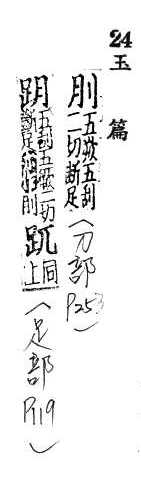 24 玉篇
刖 五厥五刮二切斷足 (刀部 P253)
跀 五刮五厥二切斷足刖 𧿁 同上 (足部 P119)